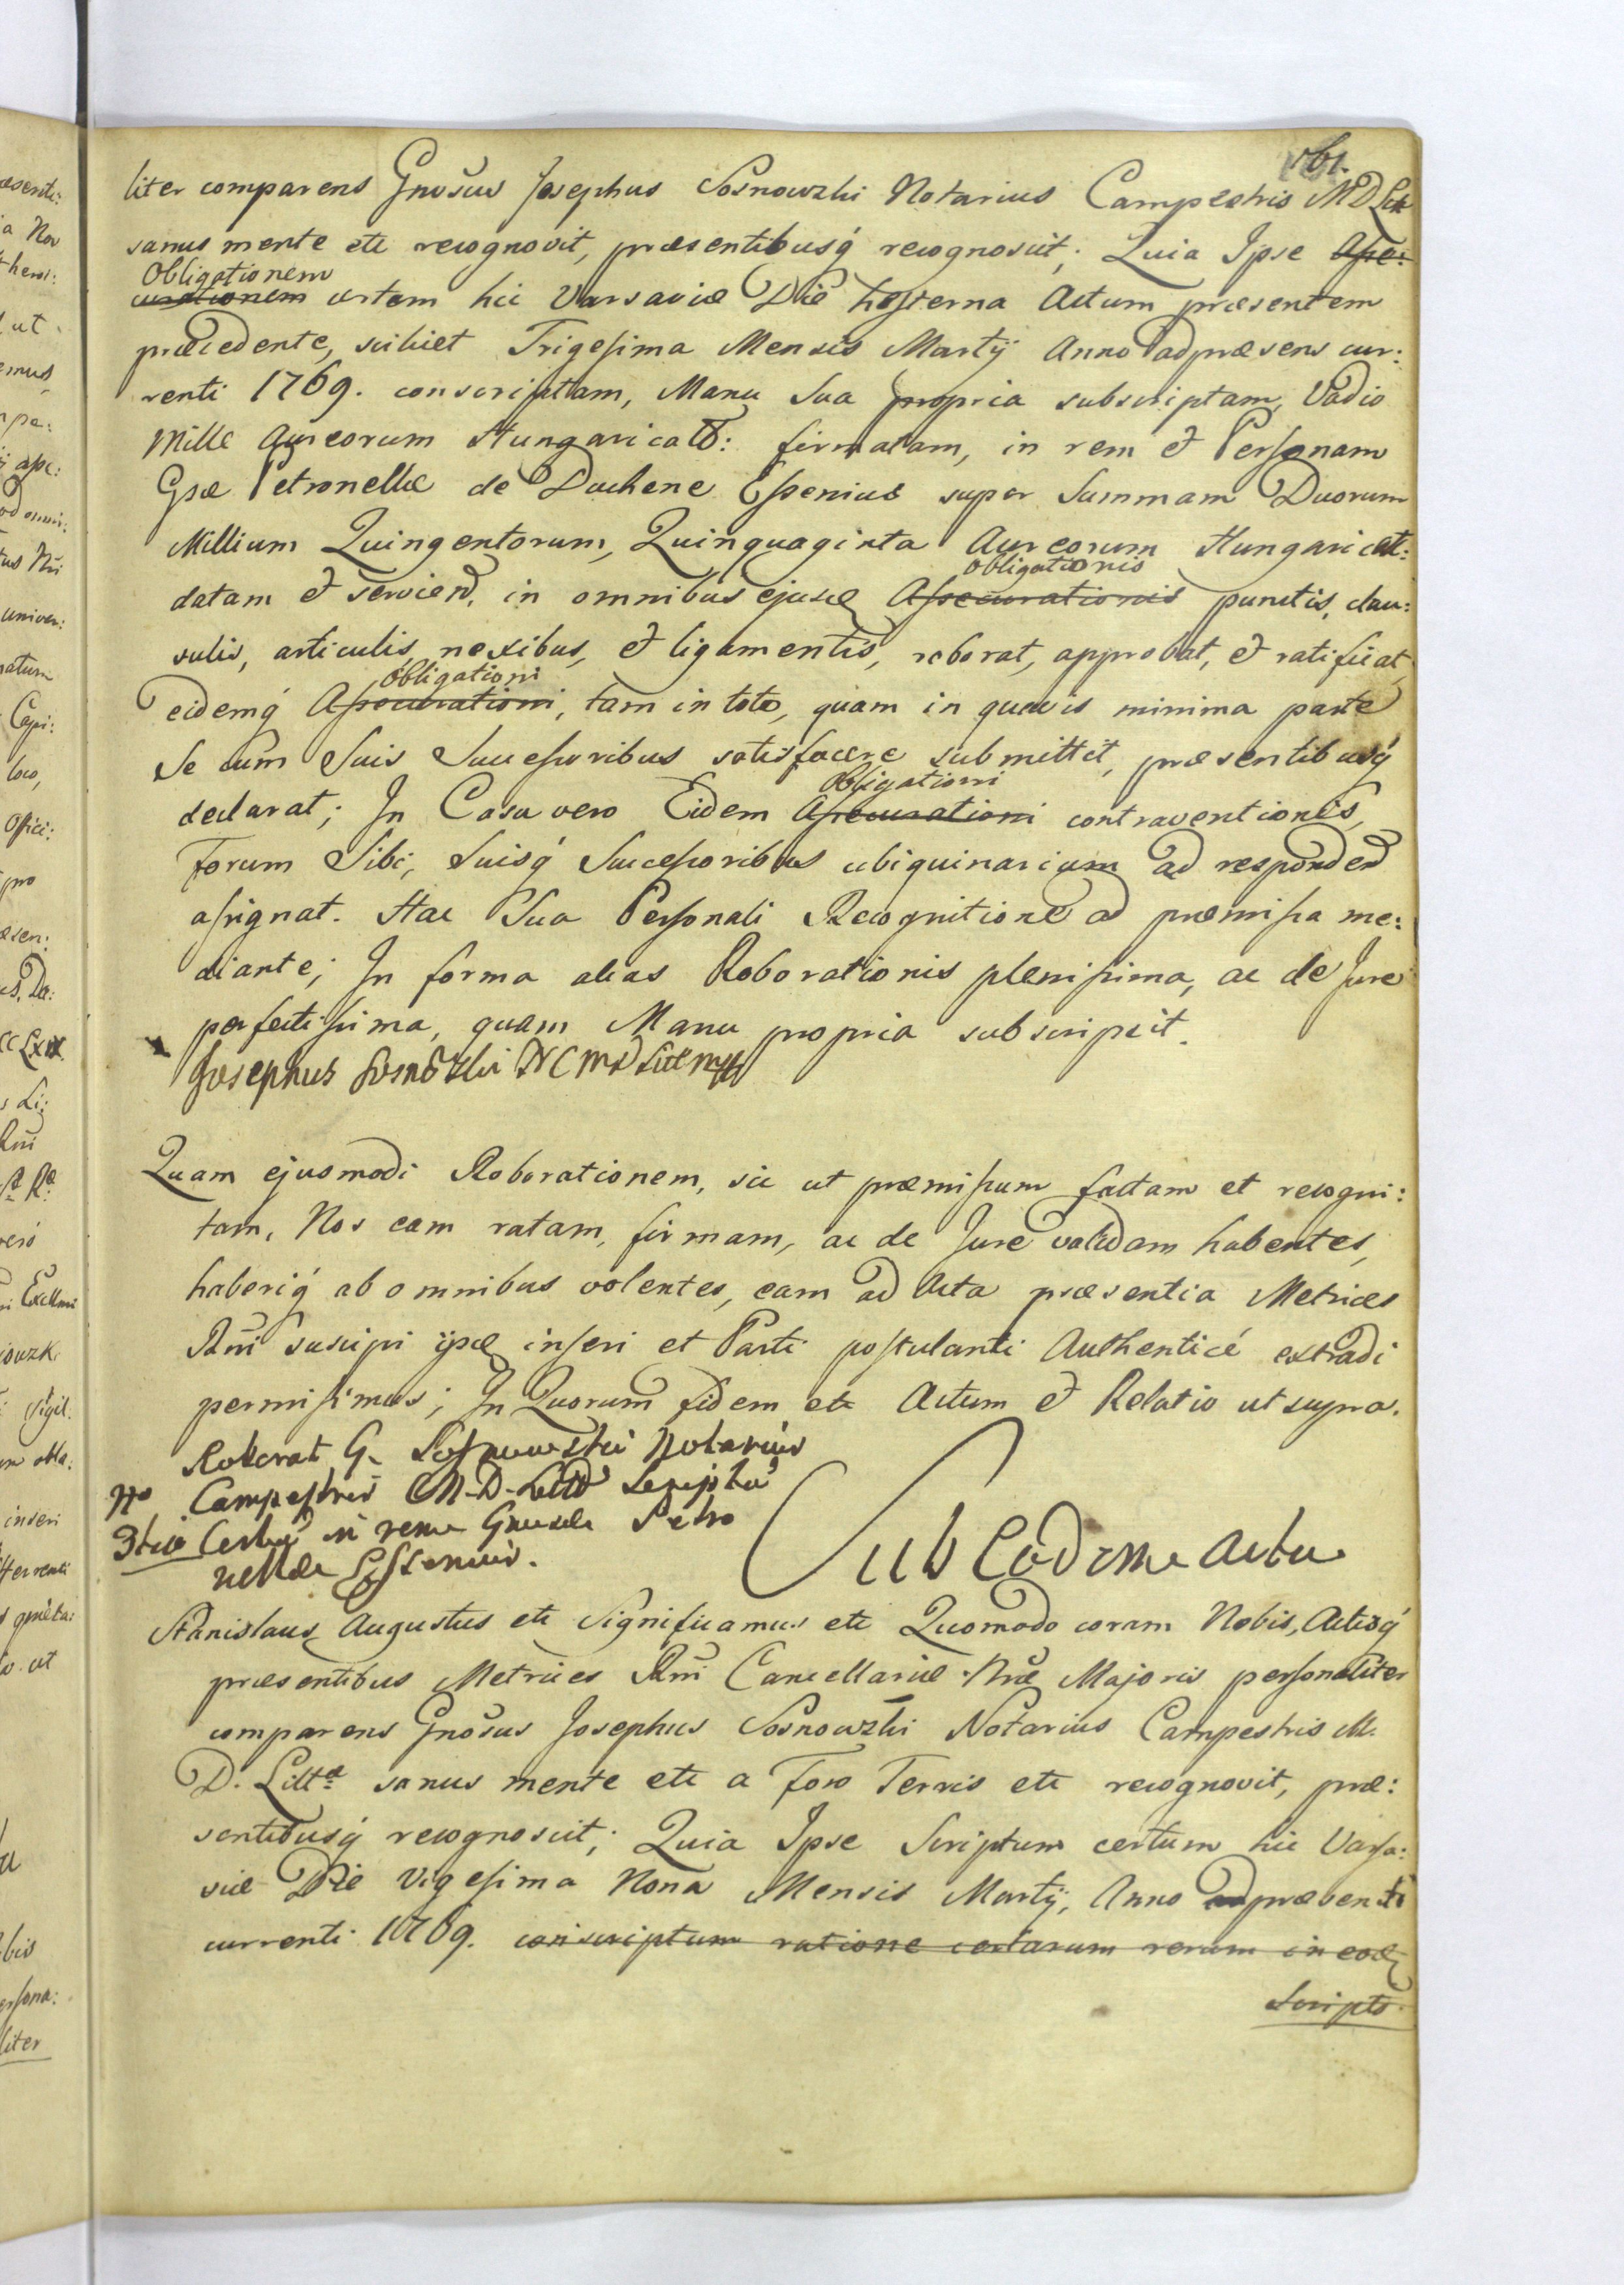 161.
liter comparens Gnosus Josephus Sosnowzki Notarius Campestris MD Litt
sanus mente etc recognovit, præsentibusq́ recognoscit; Quia Ipse Asse:
Obligationem
curationem certam hic Varsaviæ Die hesterna Actum præsentem
præcedente, scilicet Trigesima Mensis Martij Anno ad præsens cur:
renti 1769. conscriptam, Manu Sua propria subscriptam, Vadio
Mille Aureorum Hungaricalō: firmatam, in rem et Personam
Gsæ Petronellæ de Duchene Essenius super Summam Duorum
Millium Quingentorum, Quinquaginta Aureorum Hungarical:
obligationis
datam et serviend. in omnibus ejusd Assecurationis punctis, clau:
sulis, articulis, nexibus, et ligamentis, roborat, approbat, et ratificat,
obligationi
eidemq́ Assecurationi, tam in toto, quam in quavis minima parte
Se cum Suis Successoribus satisfacere submittit, præsentibusq́
Obligationi
declarat; In Casu vero Eidem Assecurationi contraventionis,
Forum Sibi, Suisq́ Successoribus ubiquinarium ad respondend
assignat. Hac Sua Personali Recognitione ad præmissa me:
diante; In forma alias Roborationis plenissima, ac de Jure
perfectissima, quam Manu propria subscripsit.
Josephus Sosnowzki NC MD Litt mpp
Quam ejusmodi Roborationem, sic ut præmissum factam et recogni:
tam, Nos eam ratam, firmam, ac de Jure validam habentes,
haberiq́ ab omnibus volentes, eam ad Acta præsentia Metrices
Rni suscipi ijsq inseri et Parti postulanti Authenticé extradi
permisimus; In Quorum fidem etc Actum et Relatio ut supra.
Roborat G. Sosnowski Notarius
Campestris M. D. Littō Scriptū
certū in rem Gnusæ Petro
nellæ Essenius.
Sub Eodem Actu
Stanislaus Augustus etc Significamus etc Quomodo coram Nobis, Actisq́
præsentibus Metrices Rni Cancellariæ Nræ Majoris personaliter
comparens Gnosus Josephus Sosnowzki Notarius Campestris M.
D. Litt sanus mente etc a Foro Terris etc recognovit, præ:
sentibusq́ recognoscit; Quia Ipse Scriptum certum hic Varsa:
viæ Die Vigesima Nona Mensis Martij, Anno ad præsenti
currenti 1769. conscriptum ratione certarum rerum in eod
Scripto